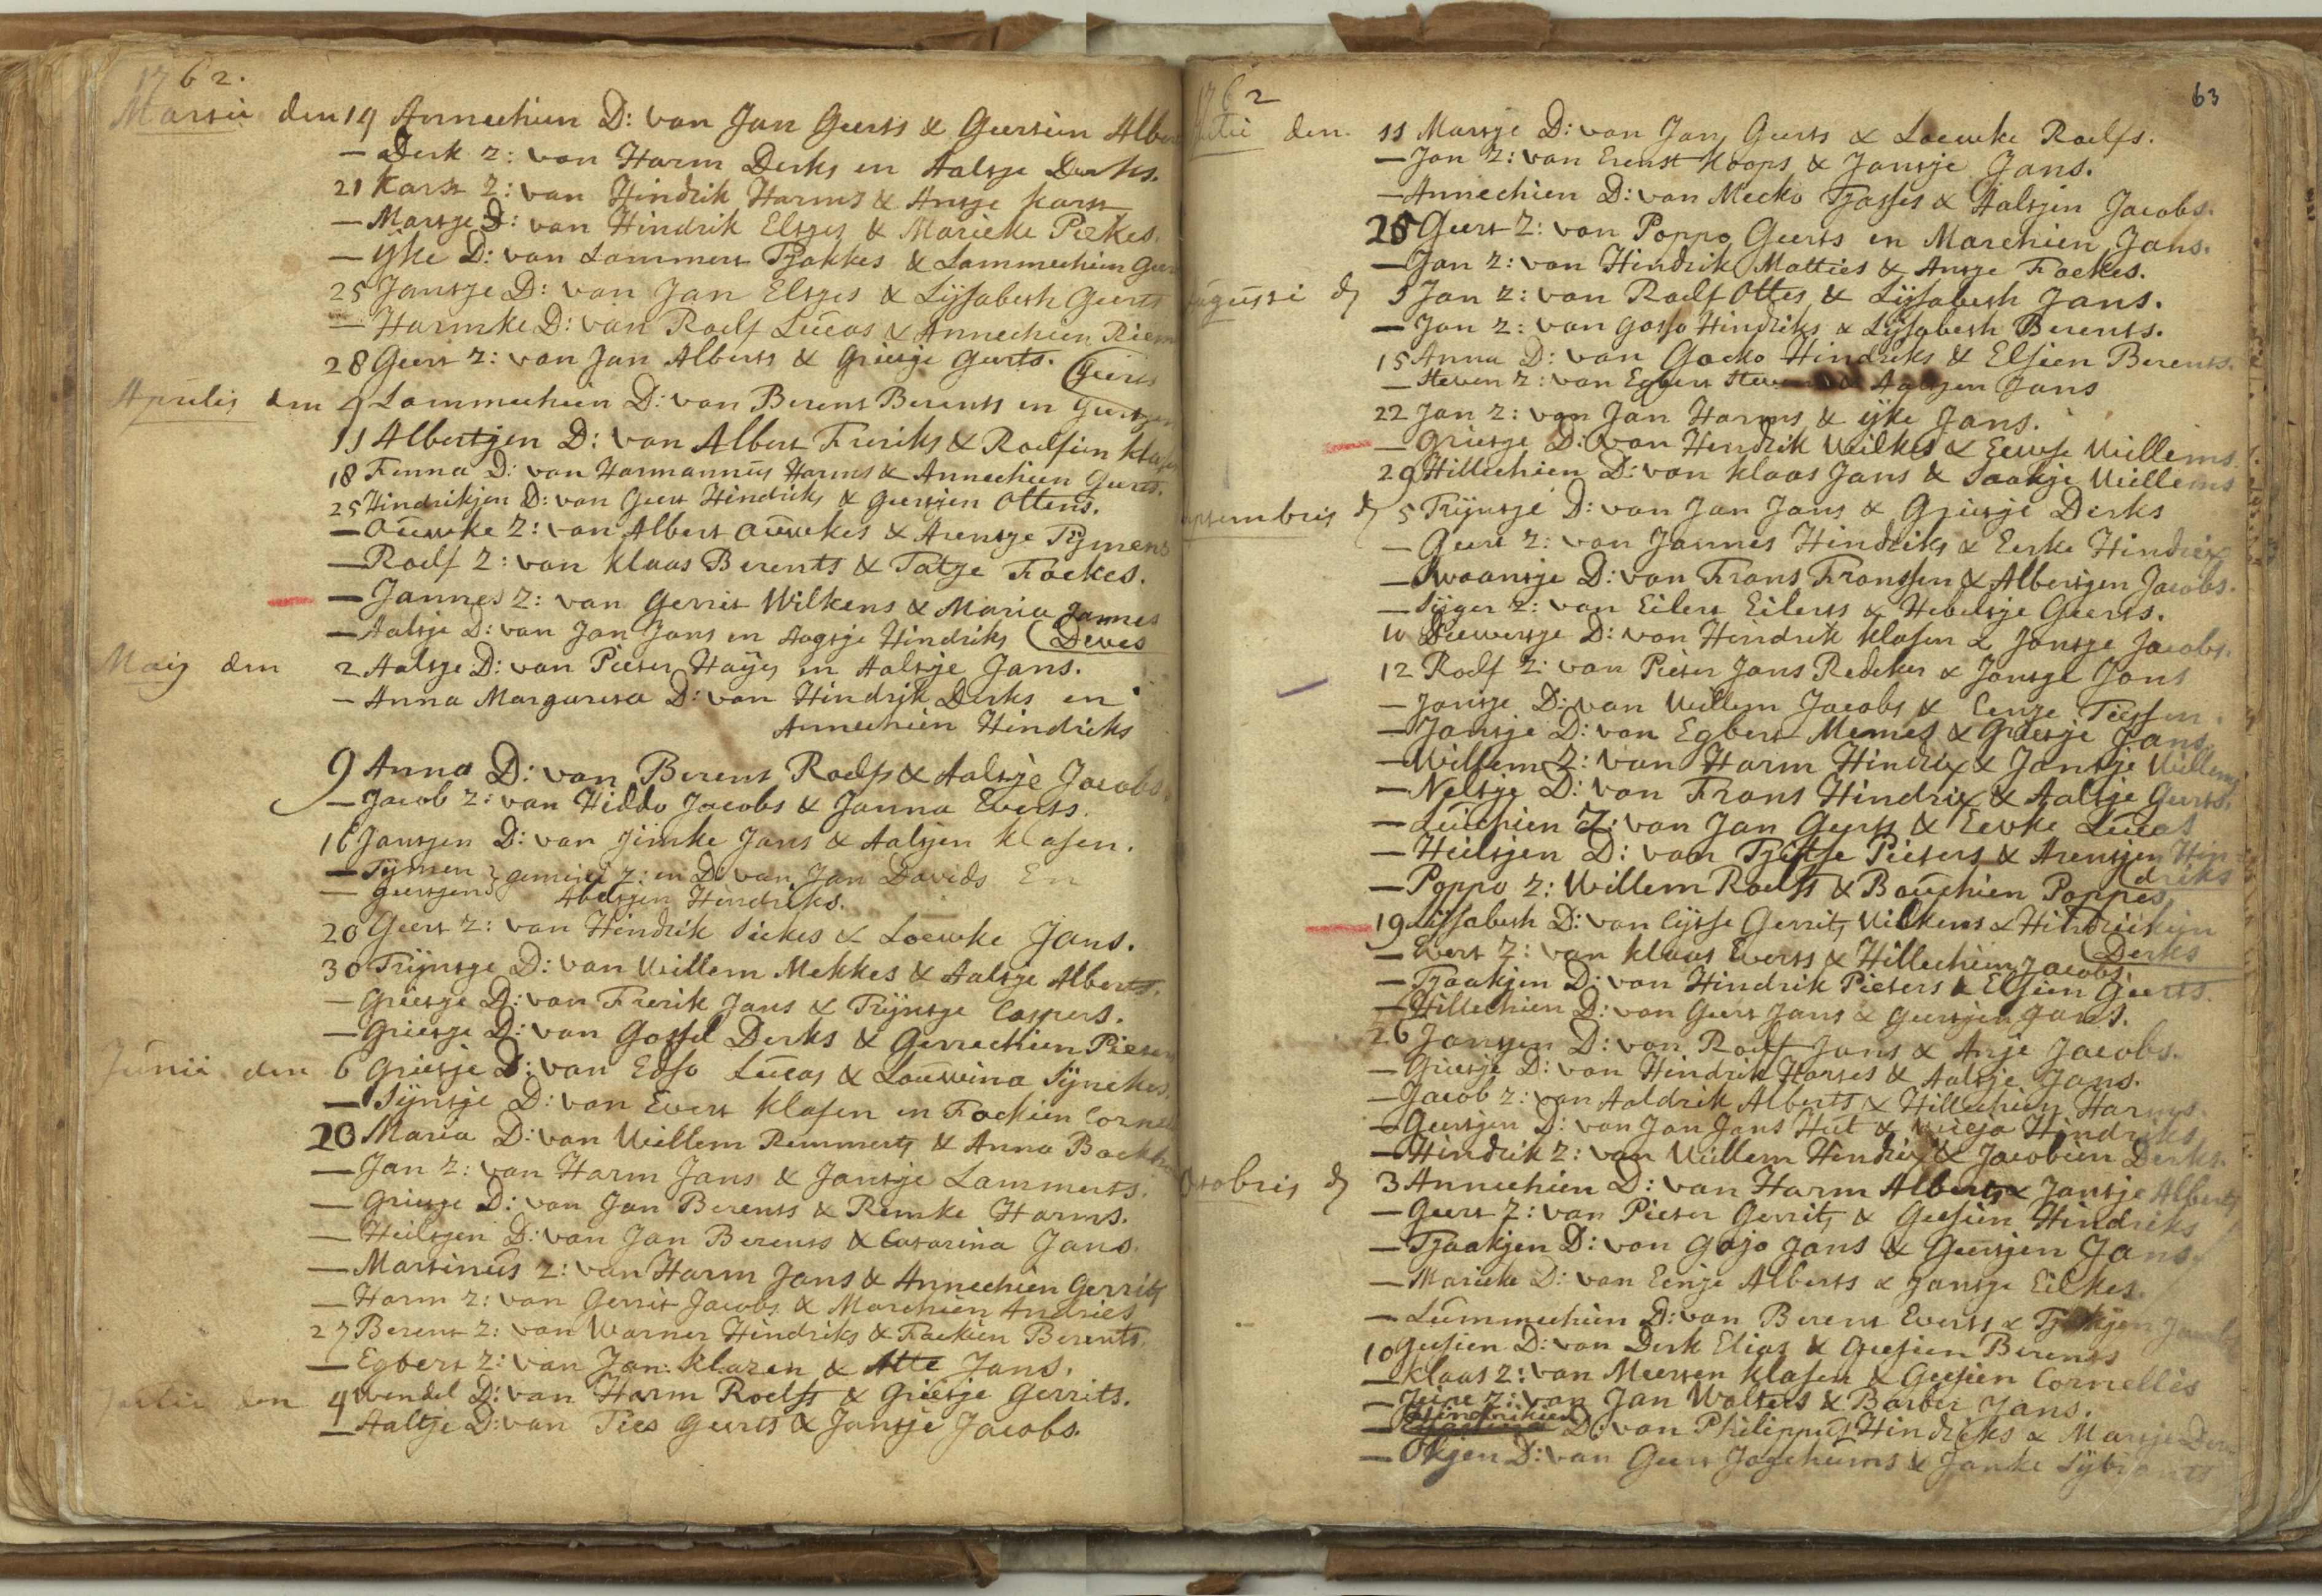 1762.
Martii den 14 Annechien D: van Jan Geerts & Geertien Alber
— Derk Z: van Harm Derks en Aaltje Derks.
21 Karst Z: van Hindrik Harms & Antje Karst
— Martje D: van Hindrik Eltjes & Marieke Piekes.
— Ijke D: van Lammert Tjakkes & Lammechien Geer
25 Jantje D: van Jan Eltjes & Lijsabeth Geerts
— Harmke D: van Roelf Lucas & Annechien Riem
28 Geert Z: van Jan Alberts & Grietje Geerts.
Aprilis den 4 Lammechien D: van Berent Berents en Geertjen (Geerts
11 Albertjen D: van Albert Freriks & Roelfien Klasen
18 Fenna D: van Harmannus Harms & Annechien Geerts.
25 Hindrikjen D: van Geert Hindriks & Geertjen Ottens.
— Ouwke Z: van Albert Ouwkes & Arentje Tijmens
— Roelf Z: van Klaas Berents & Tatje Fockes.
— Jannes Z: van Gerrit Wilkens & Maria Jannes
— Aaltje D: van Jan Jans en Aagtje Hindriks (Dewes
Maij den 2 Aaltje D: van Pieter Haijes en Aaltje Jans.
— Anna Margareta D: van Hindrijk Derks en
Annechien Hindriks
9 Anna D: van Berent Roelfs & Aaltje Jacobs.
— Jacob Z: van Hiddo Jacobs & Janna Everts.
16 Jantjen D: van Jimke Jans & Aaltjen Klasen.
— Tijmen } gemini Z: en D: van Jan Davids En
— Geertjen } Abeltjen Hindriks.
20 Geert Z: van Hindrik Siekes & Loewke Jans.
30 Trijntje D: van Willem Mekkes & Aaltje Alberts.
— Grietje D: van Frerik Jans & Trijntje Caspers.
— Grietje D: van Gossel Derks & Gerrechien Pieters
Junii den 6 Grietje D: van Edso Lucas & Louwina Sijnekes.
— Sijntje D: van Evert Klasen en Fockien Cornel
20 Maria D: van Willem Remmerts & Anna Backh
— Jan Z: van Harm Jans & Jantje Lammerts.
— Grietje D: van Jan Berents & Remke Harms.
— Heiltjen D: van Jan Berents & Catarina Jans.
— Martinus Z: van Harm Jans & Annechien Gerrits
— Harm Z: van Gerrit Jacobs & Marchien Andries
27 Berent Z: van Warner Hindriks & Fockien Berents.
— Egbert Z: van Jan Klazen & Atte Jans.
Julii den 4 Wendel D: van Harm Roelfs & Grietje Gerrits.
— Aaltje D: van Ties Geerts & Jantje Jacobs.
1762
63
Julii den. 11 Martje D: van Jan Geerts & Loewke Roelfs.
— Jan Z: van Ernst Koops & Jantje Jans.
— Annechien D: van Mecko Tjasses & Aaltjen Jacobs.
25 Geert Z: van Poppo Geerts en Marchien Jans.
— Jan Z: van Hindrik Matties & Antje Fockes.
Augusti d 1 Jan Z: van Roelf Ottes & Lijsabeth Jans.
— Jan Z: van Gosso Hindriks & Lijsabeth Berents.
15 Anna D: van Gocko Hindriks & Elsien Berents.
— Steven Z: van Egbert & Aaltjen Jans
22 Jan Z: van Jan Harms & Ijke Jans.
— Grietje D: van Hendrik Wilkes & Eewse Willems.
29 Hillechien D: van Klaas Jans & Saakje Willems
Septembris d 5 Trijntje D: van Jan Jans & Grietje Derks
— Geert Z: van Jannes Hindriks & Eeke Hindrix
— Swaantje D: van Frans Franssen & Albertjen Jacobs.
— Sijger Z: van Eilert Eilerts & Hebeltje Geerts.
10 Diewertje D: van Hindrik Klasen & Jantje Jacobs.
12 Roelf Z: van Pieter Jans Redeker & Jantje Jans
— Jantje D: van Willem Jacobs & Eenje Tiessen.
— Jantje D: van Egbert Mennes & Grietje Jans
— Willem Z: van Harm Hindrix & Jantje Willems
— Neltje D: van Frans Hindrix & Aaltje Geerts.
— Luichien Z: van Jan Geerts & Eevke Lucas
— Heiltjen D: van Tjetse Pieters & Arentjen Hin
(driks
— Poppo Z: Willem Roelfs & Bouchien Poppes
19 Lijsabeth D: van Cijsse Gerrits Wilkens & Hindrickijn
(Derks
— Evert Z: van Klaas Everts & Hillechien Jacobs.
— Tjaakjen D: van Hindrik Pieters & Elsien Geerts.
— Hillechien D: van Geert Jans & Geertjen Jans.
26 Jantjen D: van Roelf Jans & Anje Jacobs.
— Grietje D: van Hindrik Harses & Aaltje Jans.
— Jacob Z: van Aaldrik Alberts & Hillechien Harms.
— Geertjen D: van Jan Jans Hut & Hindriks
— Hindrik Z: van Willem Hindrix & Jacobien Derks.
Octobris d 3 Annechien D: van Harm Alberts & Jantje Alberts
— Geert Z: van Pieter Gerrits & Geesien Hindriks
— Tjaakjen D: van Gajo Jans & Geertjen Jans.
— Marieke D: van Eenje Alberts & Jantje Eilkes.
— Lummechien D: van Berent Everts & Tjakjen
10 Geesien D: van Derk Elias & Geesien Berents
— Klaas Z: van Meerten Klasen & Geesien Cornellis
— Z: van Jan Wolters & Barber Jans.
— Hindrikien D: van Philippus Hindriks & Martje
— Okjen D: van Geert Jogchums & Janke Sijbrants